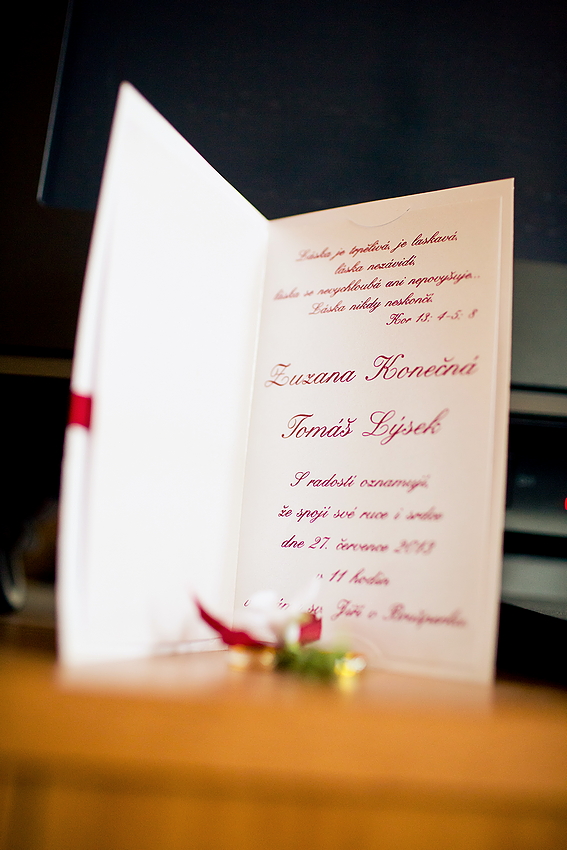 Láska je trpělivá, je laskavá,
láska nezávidí,
láska se nevychloubá ani nepovyšuje...
Láska nikdy neskončí.
Kor 13: 4-5; 8
Zuzana Konečná
Tomáš Lýsek
S radostí oznamují,
že spojí své ruce i srdce
dne 27. července 2013
v 11 hodin
sv. Jiří v